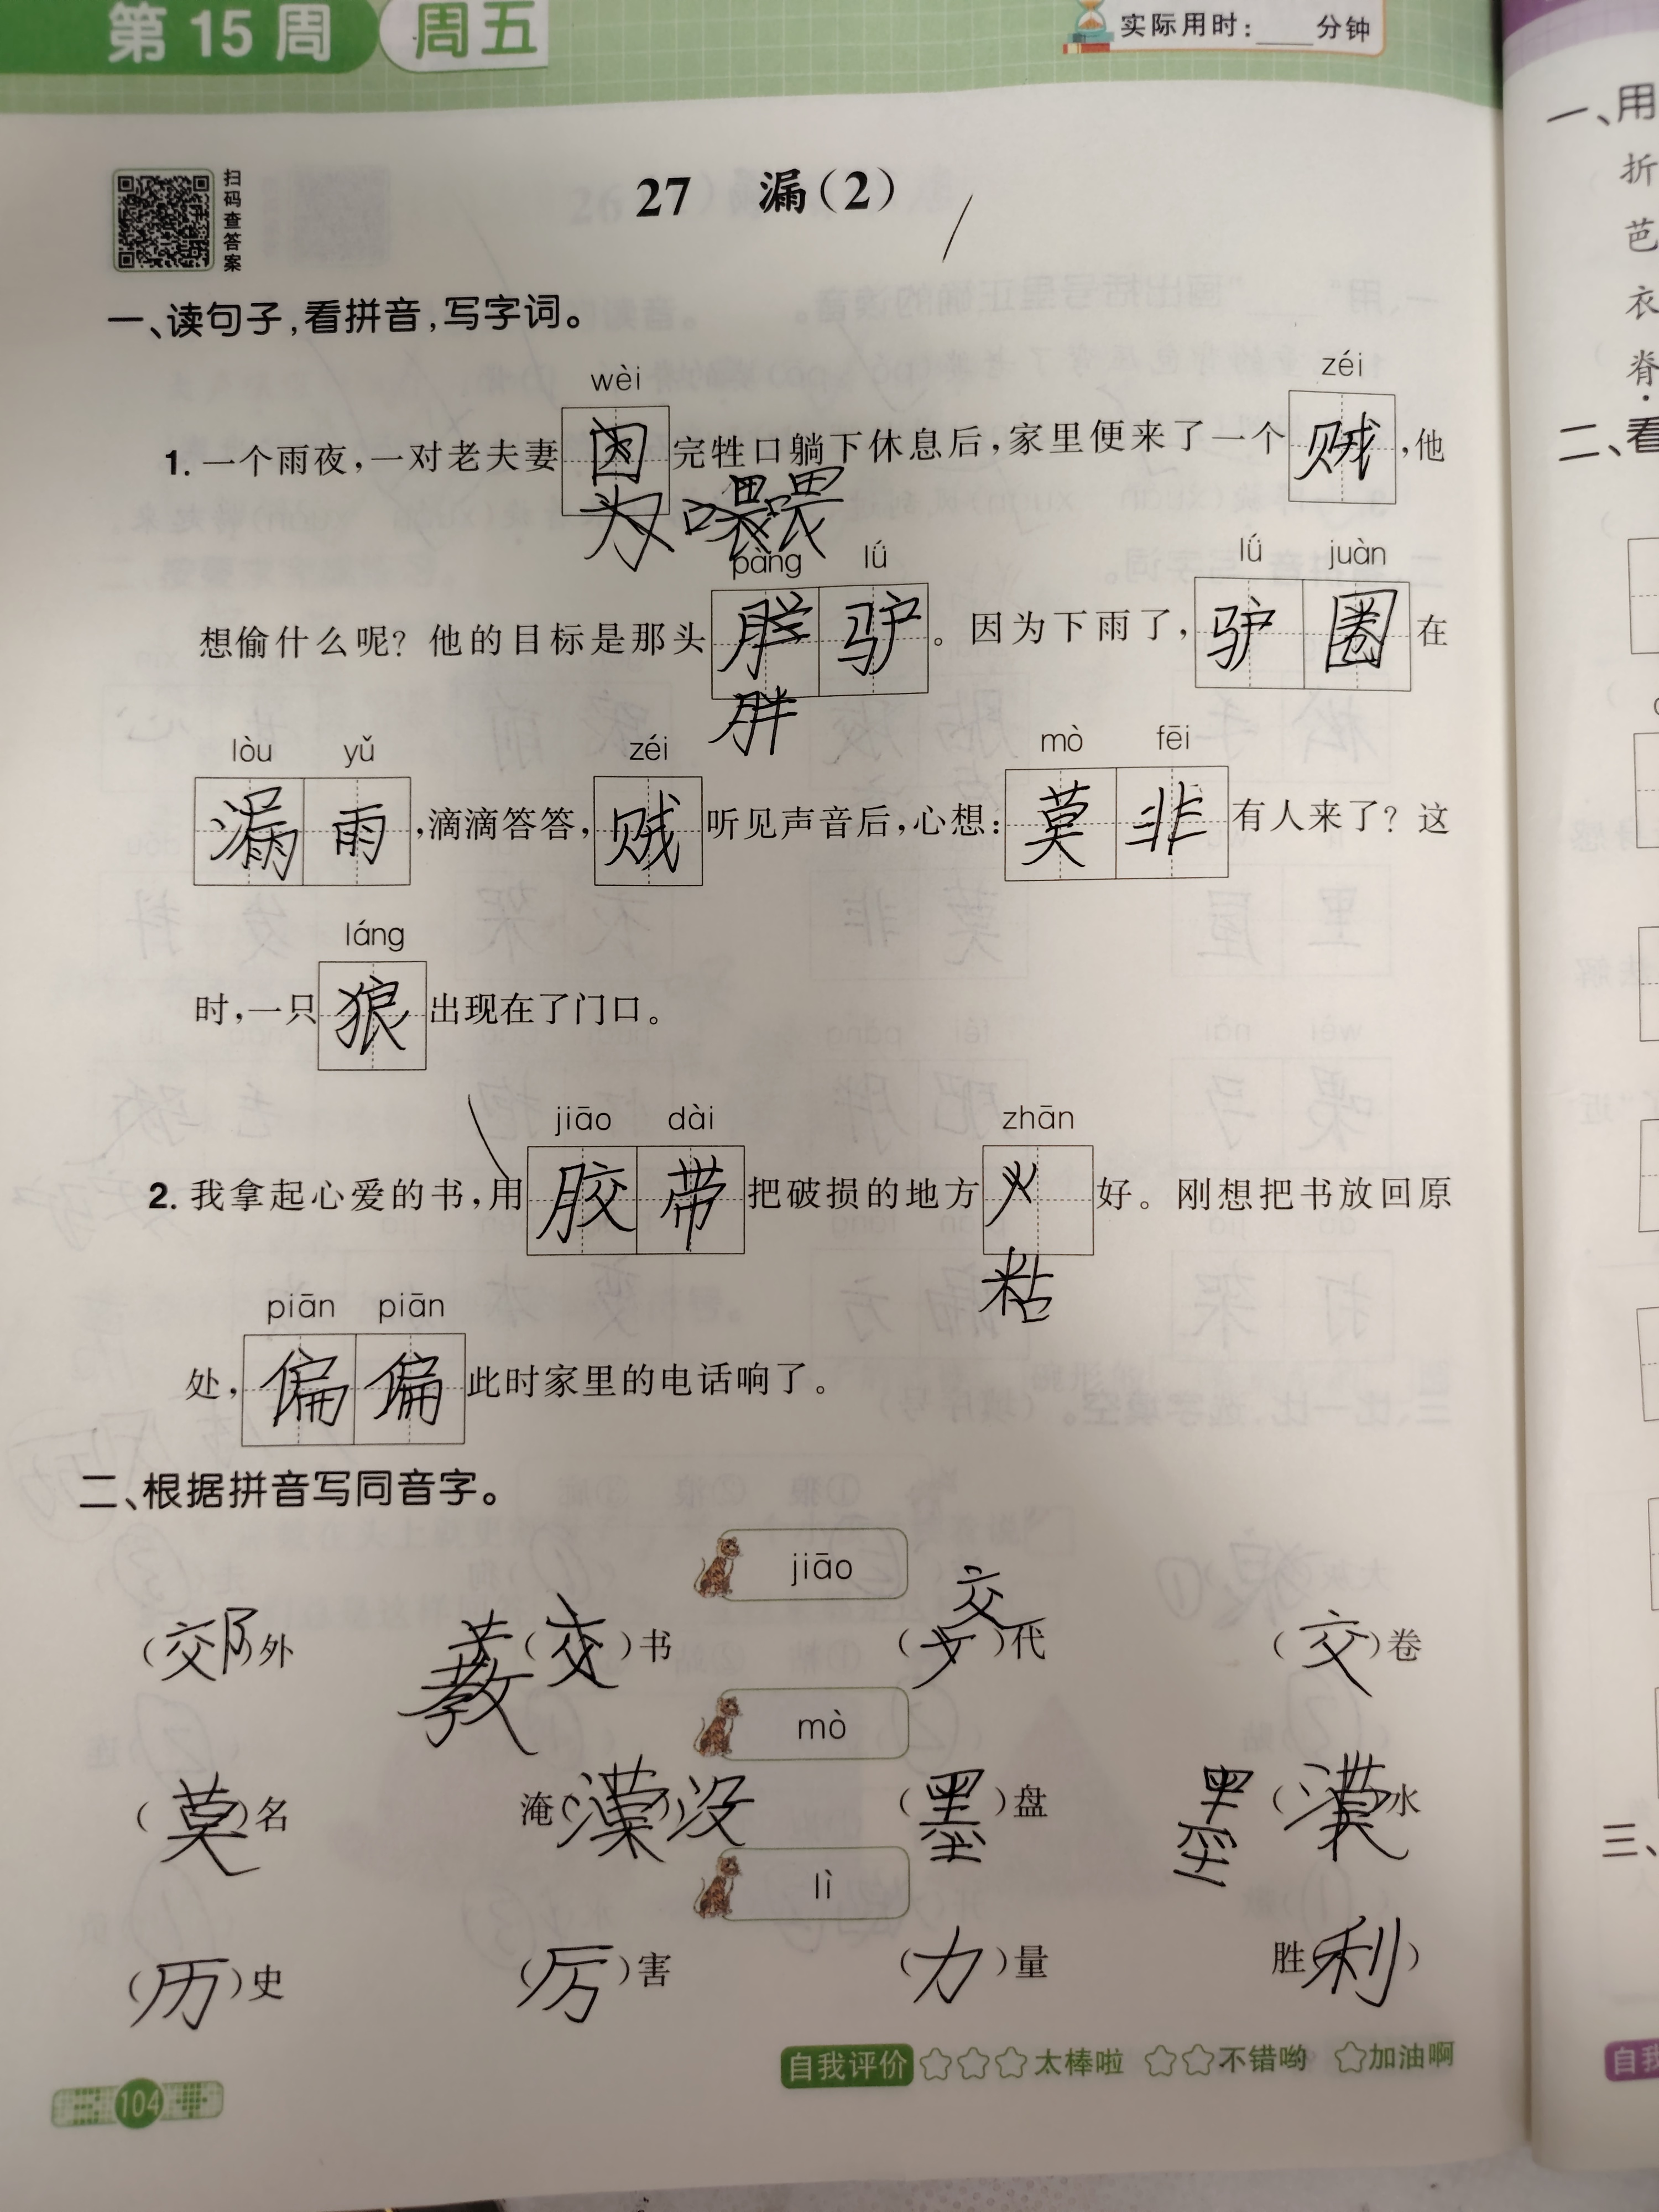 第15周 周五
实际用时:____分钟
扫码查答案
27 漏(2)
一、读句子,看拼音,写字词。
wèi zéi
1. 一个雨夜,一对老夫妻完牲口躺下休息后,家里便来了一个贼,他
为 喂喂
pàng lǘ lǘ juàn
想偷什么呢?他的目标是那头胖驴。因为下雨了,驴圈在
胖
lòu yǔ zéi mò fēi
漏雨,滴滴答答,贼听见声音后,心想:莫非有人来了?这
láng
时,一只狼出现在了门口。
jiāo dài zhān
2. 我拿起心爱的书,用胶带把破损的地方好。刚想把书放回原
粘
piān piān
处,偏偏此时家里的电话响了。
二、根据拼音写同音字。
jiāo
交
(郊)外 教(交)书 ()代 (交)卷
mò
(莫)名 淹(漠)没 (墨)盘 墨(漠)水
lì
(历)史 (厉)害 (力)量 胜(利)
自我评价 ☆☆☆太棒啦 ☆☆不错哟 ☆加油啊
104
一、用
折
芭
衣
脊
二、看
三、
自我